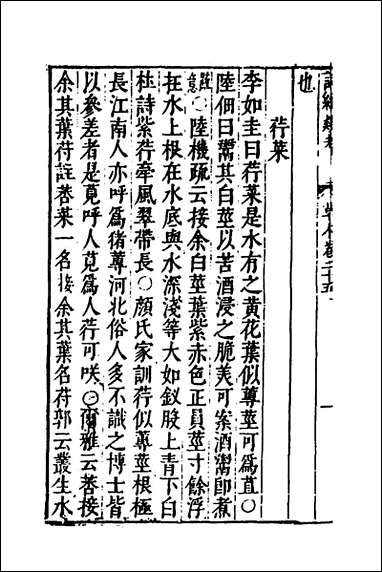 也
荇菜
李如圭曰荇菜是水有之黄花葉似蓴莖可爲苴○
陸佃曰鬻其白莖以苦酒浸之脆美可案酒鬻即煮
○陸機疏云接余白莖葉紫赤色正員莖寸餘浮
在水上根在水底與水深淺等大如釵股上青下白
杜詩紫荇牽風翠帶長○顔氏家訓荇似蓴莖根極
長江南人亦呼爲猪蓴河北俗人多不識之博士皆
以參差者是莧呼人莧爲人荇可咲○爾雅云莕接
余其葉苻註莕菜一名接余其葉名苻郭云叢生水